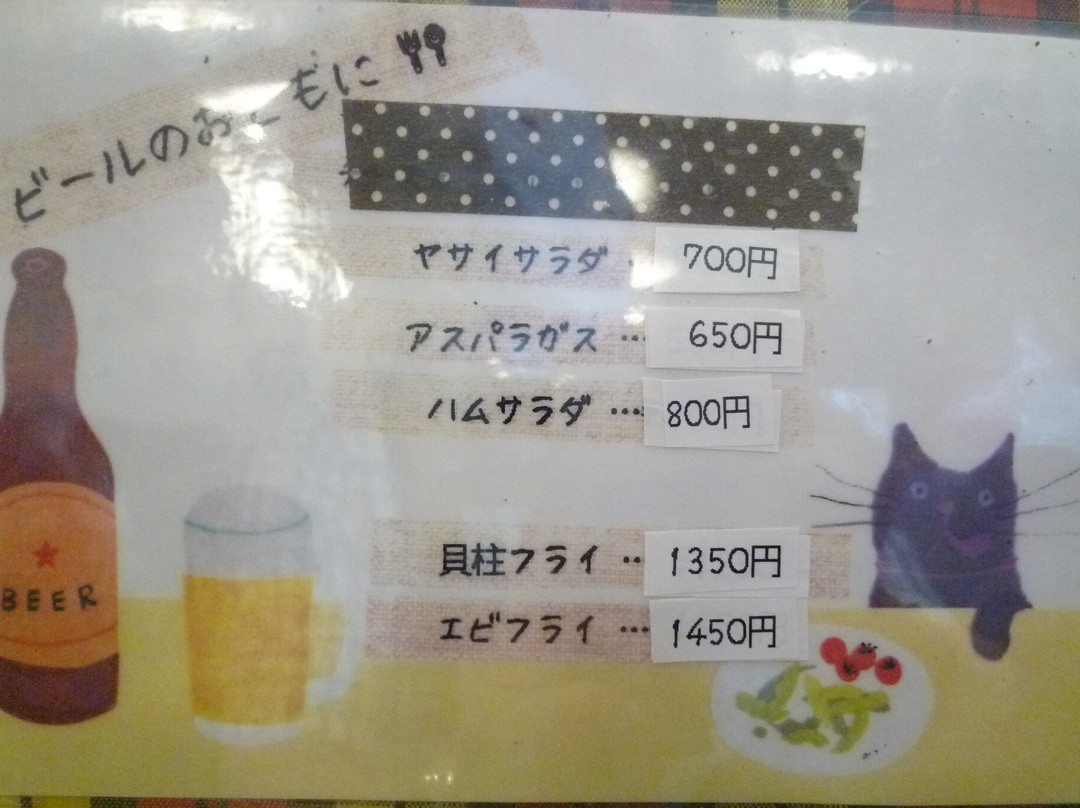 ビールのおともに
ヤサイサラダ ・ 700円
アスパラガス … 650円
ハムサラダ … 800円
貝柱フライ ‥ 1350円
エビフライ … 1450円
BEER